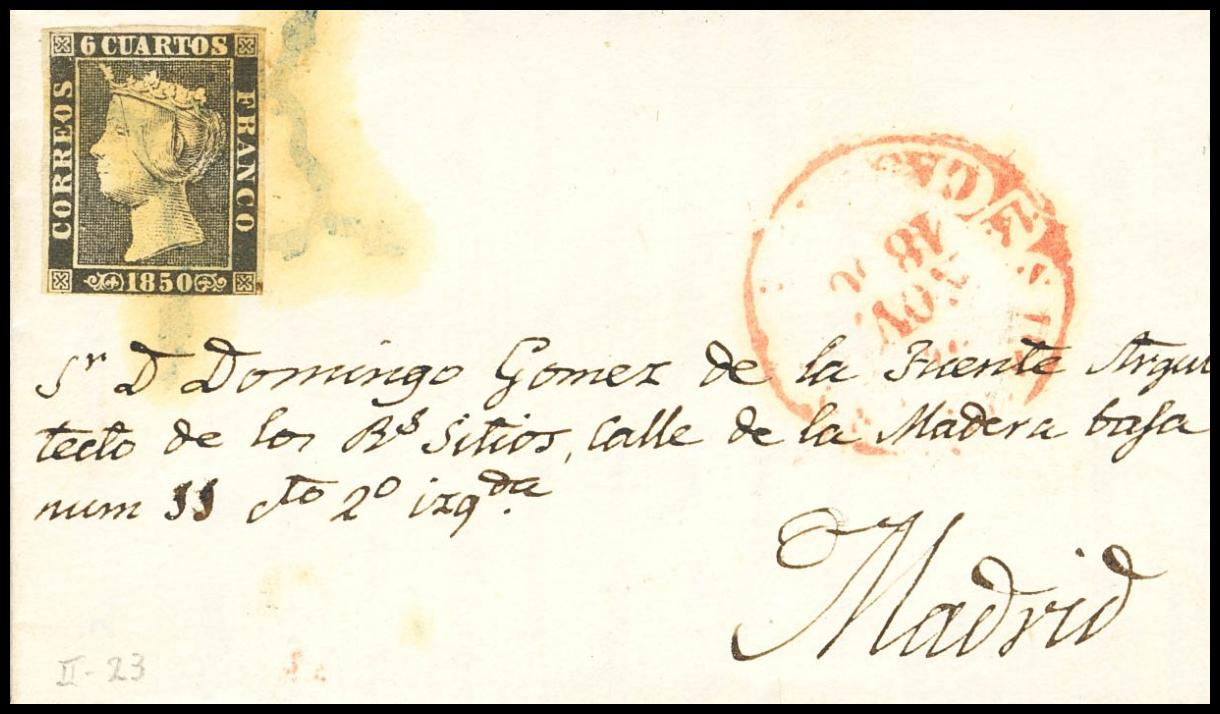 6 CUARTOS
CORREOS
FRANCO
1850
18
NOV
Sr D Domingo Gomez de la Fuente Arqui
tecto de los Rs Sitios, Calle de la Madera baja
num 55 cto 2º izqda.
Madrid
II-23